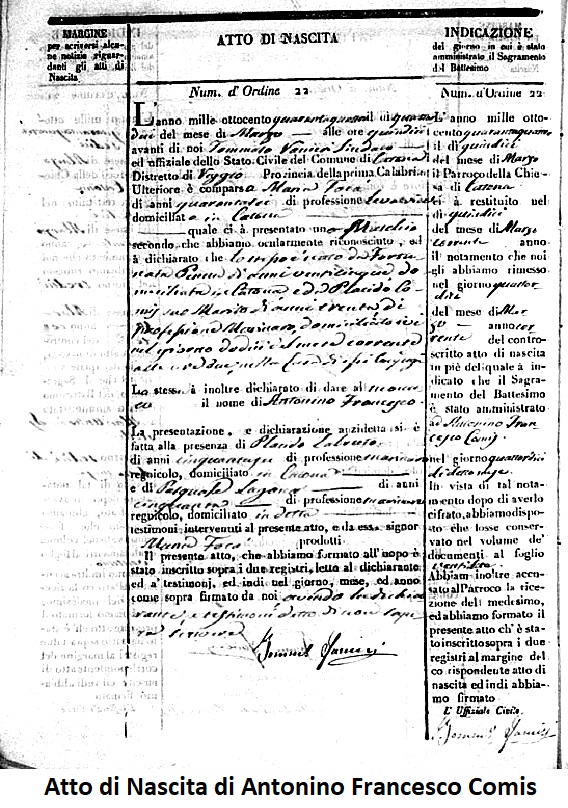 MARGINE
per scriversi alcu-
ne notizie riguar-
danti gli atti di
Nascita
ATTO DI NASCITA
Num. d' Ordine 22
L'anno mille ottocento quarantaquattro il di
dici del mese di Marzo alle ore quindici
avanti di noi Tommaso Sindaco
ed uffiziale dello Stato Civile del Comune di Catona
Distretto di Reggio Provincia della prima Calabria
Ulteriore è comparsa Maria
di anni di professione
domiciliata in Catona
quale ci à presentato uno Maschio
secondo che abbiamo ocularmente riconosciuto, ed
à dichiarato che lo stesso è nato da Fortu-
nata di anni venticinque, do-
miciliata in Catona e da Placido Co-
mis suo Marito di anni trenta di
professione Marinaro, domiciliato ivi
nel giorno dodici del mese corrente
alle ore due, nella Casa di essi Conjugi
La stessa à inoltre dichiarato di dare al
il nome di Antonino Francesco
La presentazione, e dichiarazione anzidetta si è
fatta alla presenza di Placido
di anni di professione marinaro
regnicolo, domiciliato in Catona
e di Pasquale Lagana di anni
cinquanta di professione marinaro
regnicolo, domiciliato in detta
testimoni intervenuti al presente atto, e da essa signor
Maria prodotti
Il presente atto, che abbiamo formato all'uopo è
stato inscritto sopra i due registri, letto al dichiarante
ed a' testimonj, ed indi nel giorno, mese, ed anno
come sopra firmato da noi avendo la dichia-
rante, e testimoni detto di non sape-
re scrivere
INDICAZIONE
del giorno in cui è stato
amministrato il Sagramento
del Battesimo
Num. d'Ordine 22
L' anno mille otto-
cento quarantaquattro
il dì quindici
del mese di Marzo
il Parroco della Chie-
sa di Catona
ci à restituito nel
dì quindici
del mese di Marzo
corrente anno
il notamento che noi
gli abbiamo rimesso
nel giorno quattor-
dici
del mese di Mar-
zo anno cor-
rente del contro-
scritto atto di nascita
in piè del quale à in-
dicato che il Sagra-
mento del Battesimo
è stato amministrato
ad Antonino Fran-
cesco Comis
nel giorno quattordici
di detto mese
In vista di tal nota-
mento dopo di averlo
cifrato, abbiamo dispo-
sto che fosse conser-
vato nel volume de'
documenti al foglio
Abbiam inoltre accu-
sato al Parroco la rice-
zione del medesimo,
ed abbiamo formato il
presente atto ch' è sta-
to inscritto sopra i due
registri al margine del
corrispondente atto di
nascita ed indi abbia-
mo firmato
L' Uffiziale Civile
Atto di Nascita di Antonino Francesco Comis